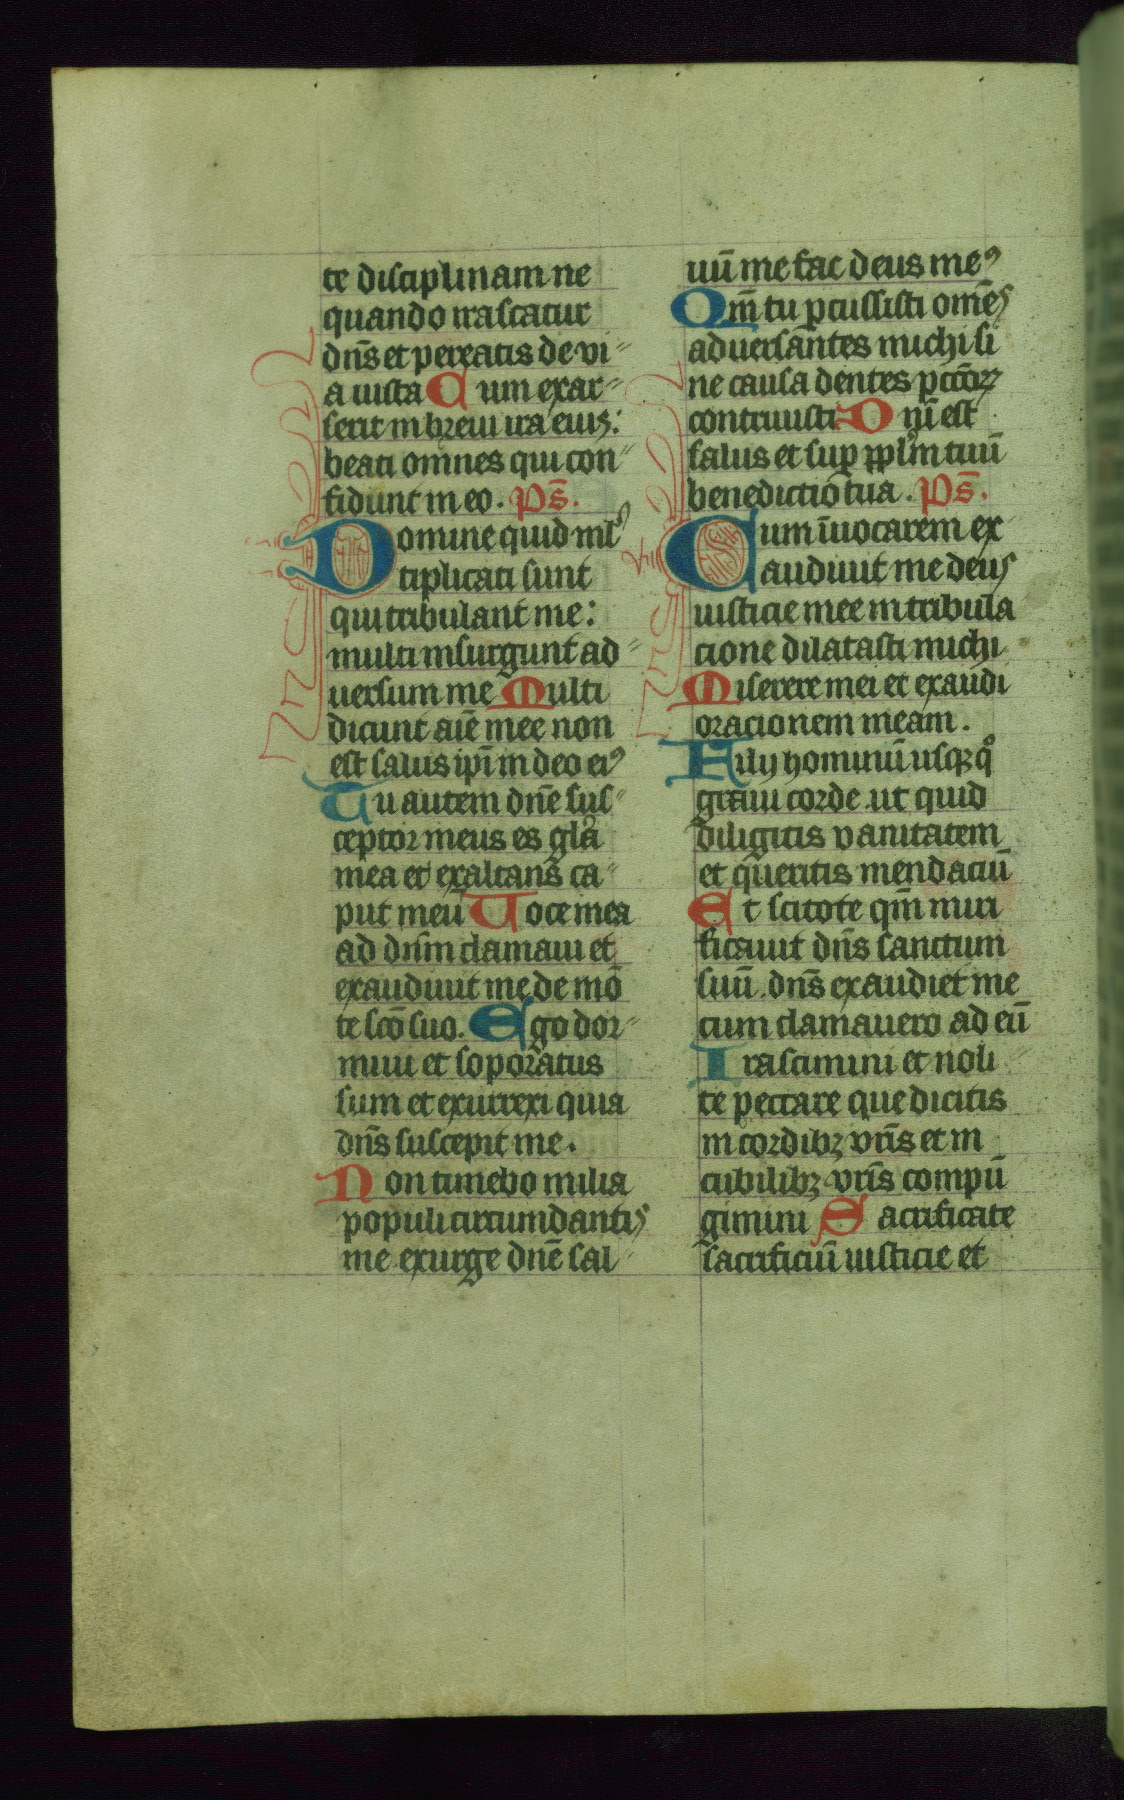 te disciplinam ne
quando irascatur
dn̄s et pereatis de vi
a iusta Cum exar
serit in breui ira eius:
beati omnes qui con
fidunt in eo. Ps̄.
Domine quid ml̉
tiplicati sunt
qui tribulant me:
multi insurgunt ad
uersum me Multi
dicunt aīe mee non
est salus ipī in deo eiꝰ
Tu autem dn̄e sus
ceptor meus es gl̉a
mea et exaltans ca
put meū Uoce mea
ad dn̄m clamaui et
exaudiuit me de mō
te sc̄o suo. Ego dor
miui et soporatus
sum et exurrexi quia
dn̄s suscepit me.
Non timebo milia
populi circumdantis
me exurge dn̄e sal
uū me fac deus meꝰ
Qm̄ tu ꝑcussisti om̄es
aduersantes michi si
ne causa dentes pc̄c̄oꝝ
contriuisti Dn̄i est
salus et suꝑ ppl̉m tuū
benedictio tua. Ps̄.
Cum īuocarem ex
audiuit me deus
iusticie mee in tribula
cione dilatasti michi
Miserere mei et exaudi
oracionem meam.
Filij hominū usqꝫ qͦ
graui corde ut quid
diligitis vanitatem
et queritis mendaciū
Et scitote qm̄ miri
ficauit dn̄s sanctum
suū dn̄s exaudiet me
cum clamauero ad eū
Irascimini et noli
te peccare que dicitis
in cordibꝫ vr̄is et in
cubilibꝫ vr̄is compū
gimini Sacrificate
sacrificiū iusticie et